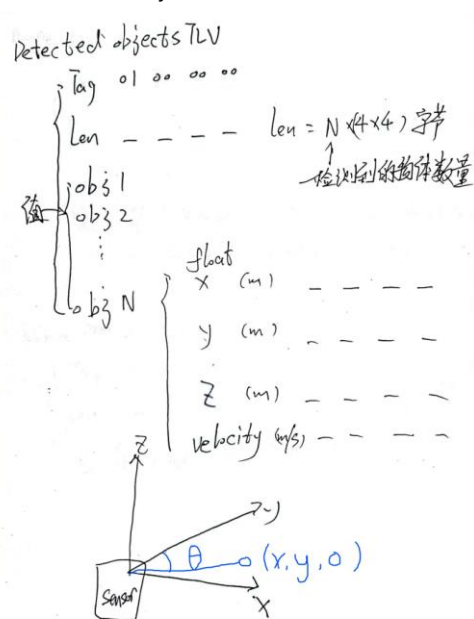 Detected objects TLV
Tag 01 00 00 00
Len _ _ _ _ len = N×(4×4) 字节
检测到的物体数量
值
obj 1
obj 2
⋮
obj N
float
x (m) _ _ _ _
y (m) _ _ _ _
z (m) _ _ _ _
velocity (m/s) _ _ _ _
z
y
θ
(x, y, 0)
x
sensor